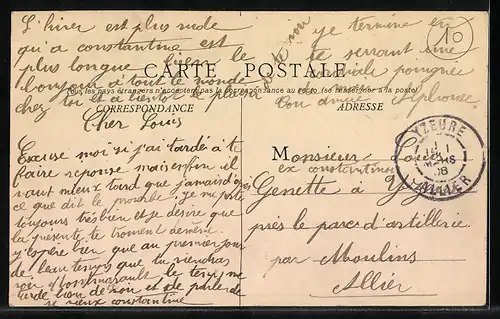 L'hiver est plus rude
qu'a constantine est
plus longue bien le
bonjour à tout le monde
chez toi et a bientôt le plaisir
de te voir
je termine en
te serrant une
cordiale poignée
Ton ami Alphonse
10
CARTE POSTALE
Tous les pays étrangers n'acceptent pas la correspondance au recto (se renseigner à la poste)
CORRESPONDANCE
ADRESSE
Cher Louis
Excuse moi si j'ai tardé à te
faire réponse mais enfin il
vaut mieux tard que jamais d'après
ce que dit le proverbe je me porte
toujours très bien et je désire que
la présente te trouve de même
j'espère bien que au premier jour
de beau temps que tu viendras
voir le temps me
tarde bien de voir et de parler de
ce vieux constantine
Monsieur Louis
ex constantinois
Genette à Yzeure
près le parc d'artillerie
par Moulins
Allier
YZEURE
MARS
08
ALLIER